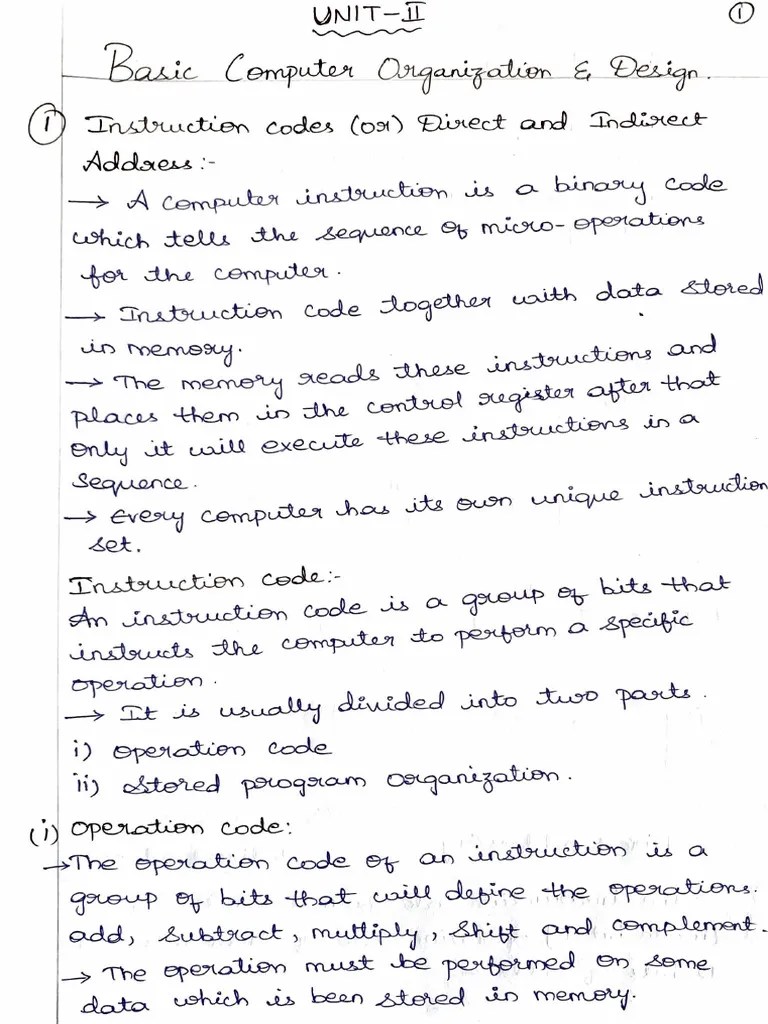 UNIT-II
①
Basic Computer Organization & Design.
① Instruction codes (or) Direct and Indirect
Address:-
→ A computer instruction is a binary code
which tells the sequence of micro-operations
for the computer.
→ Instruction code together with data stored
in memory.
→ The memory reads these instructions and
places them in the control register after that
only it will execute these instructions in a
sequence.
→ Every computer has its own unique instruction
set.
Instruction code:-
An instruction code is a group of bits that
instructs the computer to perform a specific
operation.
→ It is usually divided into two parts.
i) operation code
ii) Stored program organization.
(i) Operation code:
→ The operation code of an instruction is a
group of bits that will define the operations.
add, subtract, multiply, shift and complement.
→ The operation must be performed on some
data which is been stored in memory.